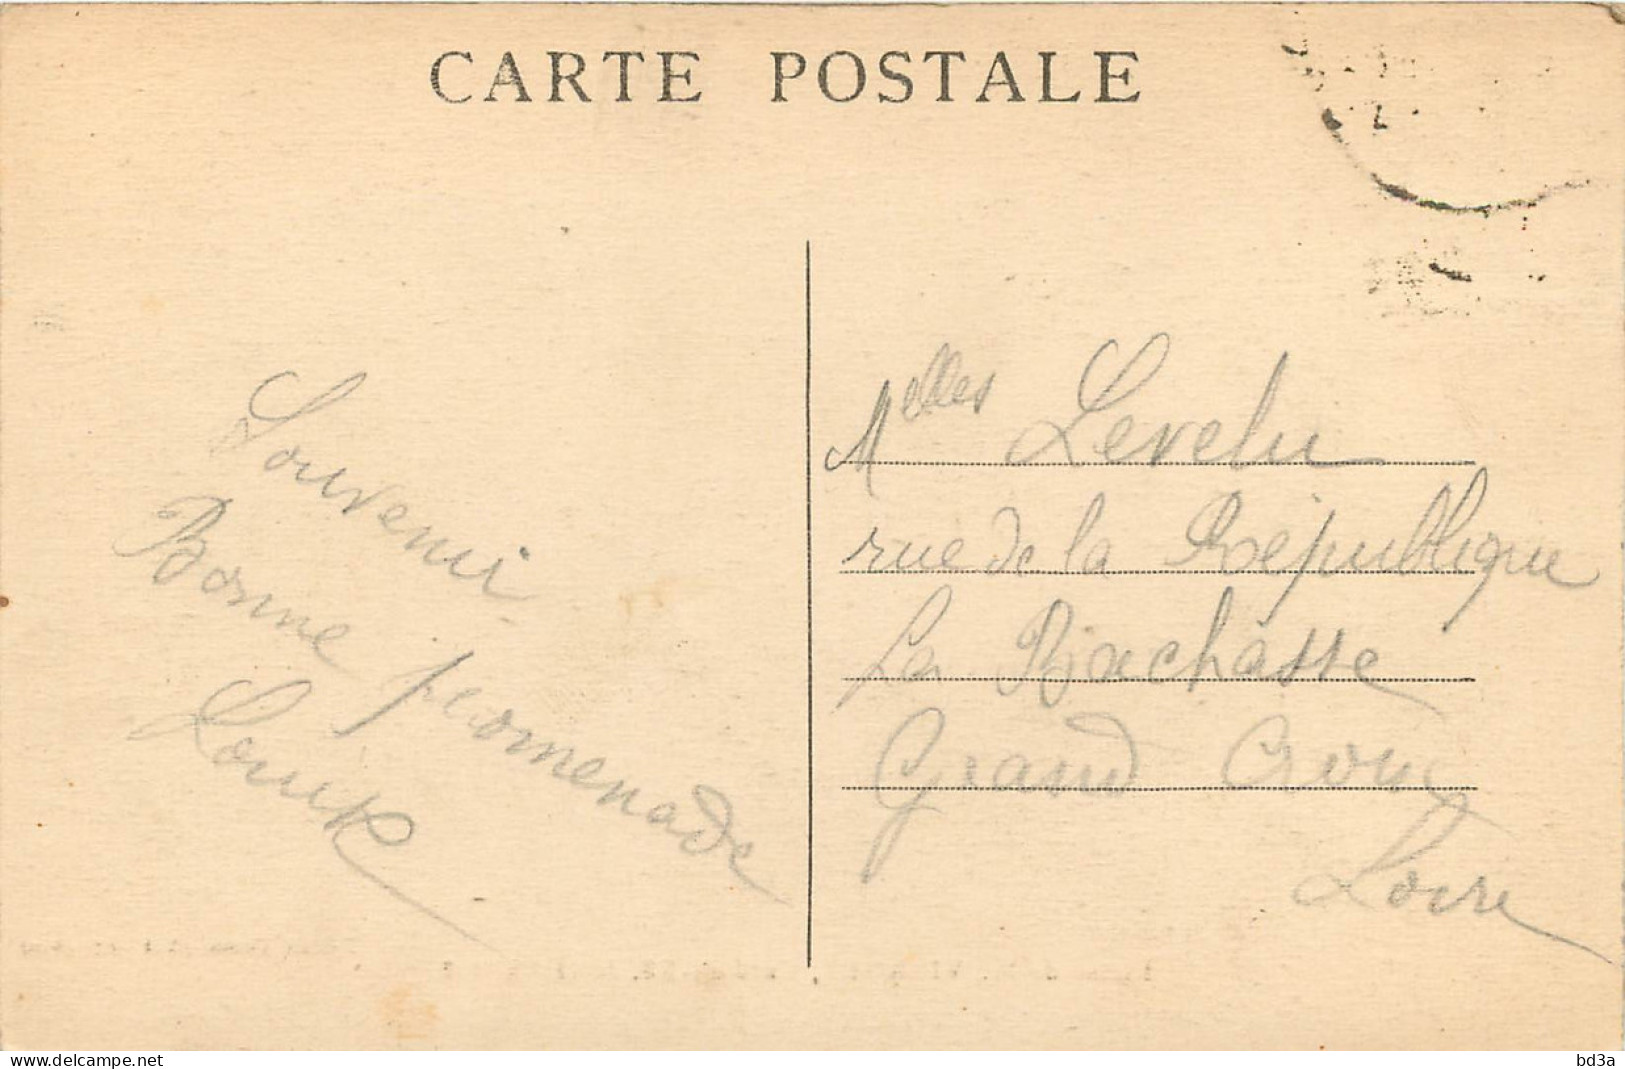 CARTE POSTALE
Souvenir
Bonne promenade
Melles Levelu
rue de la République
La Bachasse
Grand Croix
Loire
delcampe.net
bd3a